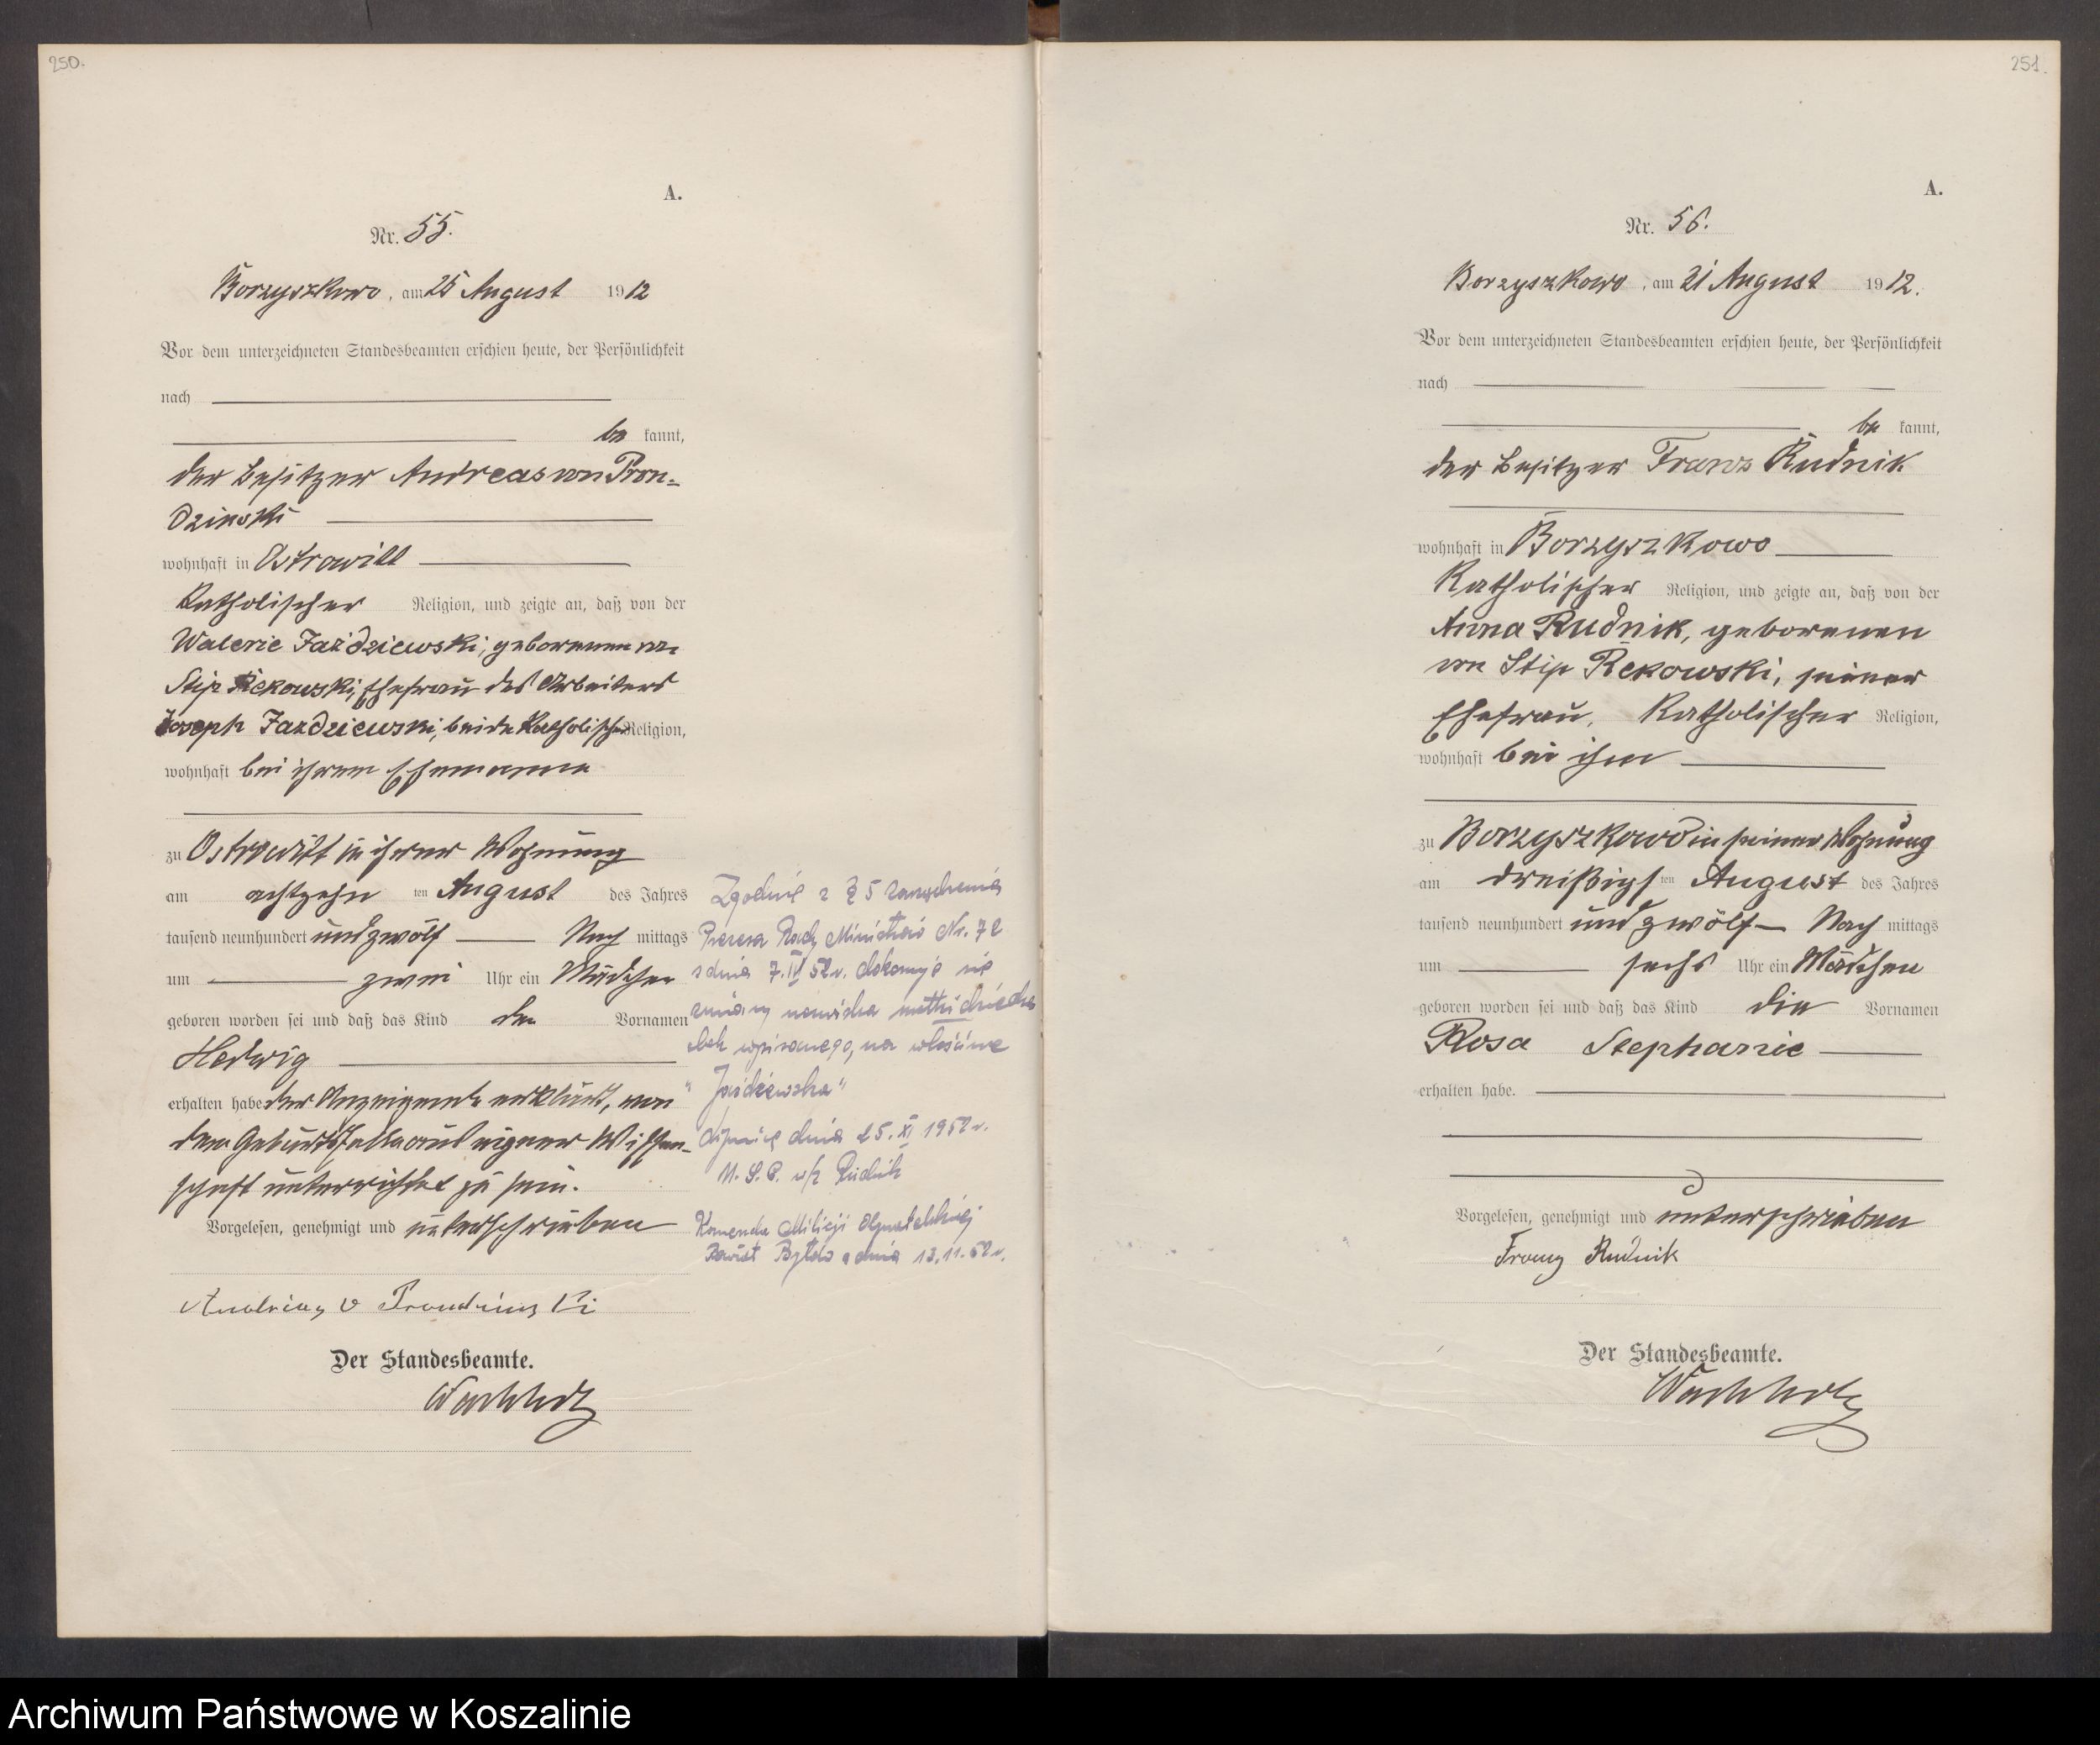 250.
A.
Nr. 55.
Borzyszkowo, am 25 August 1912
Vor dem unterzeichneten Standesbeamten erschien heute, der Persönlichkeit
nach
be kannt,
der Besitzer Andreas von Pron=
dzinski
wohnhaft in Ostrowitt
Katholischer Religion, und zeigte an, daß von der
Walerie Jazdziewski, geborenen von
Stip Rekowski, Ehefrau des Arbeiters
Joseph Jazdziewski, beide Katholischer Religion,
wohnhaft bei ihrem Ehemanne
zu Ostrowitt in ihrer Wohnung
am achtzehn ten August des Jahres
tausend neunhundert und zwölf Nach mittags
um zwei Uhr ein Mädchen
geboren worden sei und daß das Kind den Vornamen
Hedwig
erhalten habe der Anzeigende erklärt, von
dem Geburtsfalle aus eigner Wissen-
schaft unterrichtet zu sein.
Vorgelesen, genehmigt und unterschrieben
Andreas v Prondzinski
Der Standesbeamte.
Wachholz
Zgodnie z § 5 Zarządzenia
Prezesa Rady Ministrów Nr. 72
z dnia 7.IV 52 r. dokonuje się
zmiany nazwiska matki dziecka
wpisanego, na właściwe
"Jażdżewska"
dnia 25. XI 1952 r.
U. S. C. w/z Rudnik
Komenda Milicji Obywatelskiej
Powiat Bytów z dnia 13.11.52 r.
251.
A.
Nr. 56.
Borzyszkowo, am 21 August 1912.
Vor dem unterzeichneten Standesbeamten erschien heute, der Persönlichkeit
nach
be kannt,
der Besitzer Franz Rudnik
wohnhaft in Borzyszkowo
Katholischer Religion, und zeigte an, daß von der
Anna Rudnik, geborenen
von Stip Rekowski, seiner
Ehefrau, Katholischer Religion,
wohnhaft bei ihm
zu Borzyszkowo in seiner Wohnung
am dreißigs ten August des Jahres
tausend neunhundert und zwölf Nach mittags
um sechs Uhr ein Mädchen
geboren worden sei und daß das Kind die Vornamen
Rosa Stephanie
erhalten habe.
Vorgelesen, genehmigt und unterschrieben
Franz Rudnik
Der Standesbeamte.
Wachholz
Archiwum Państwowe w Koszalinie